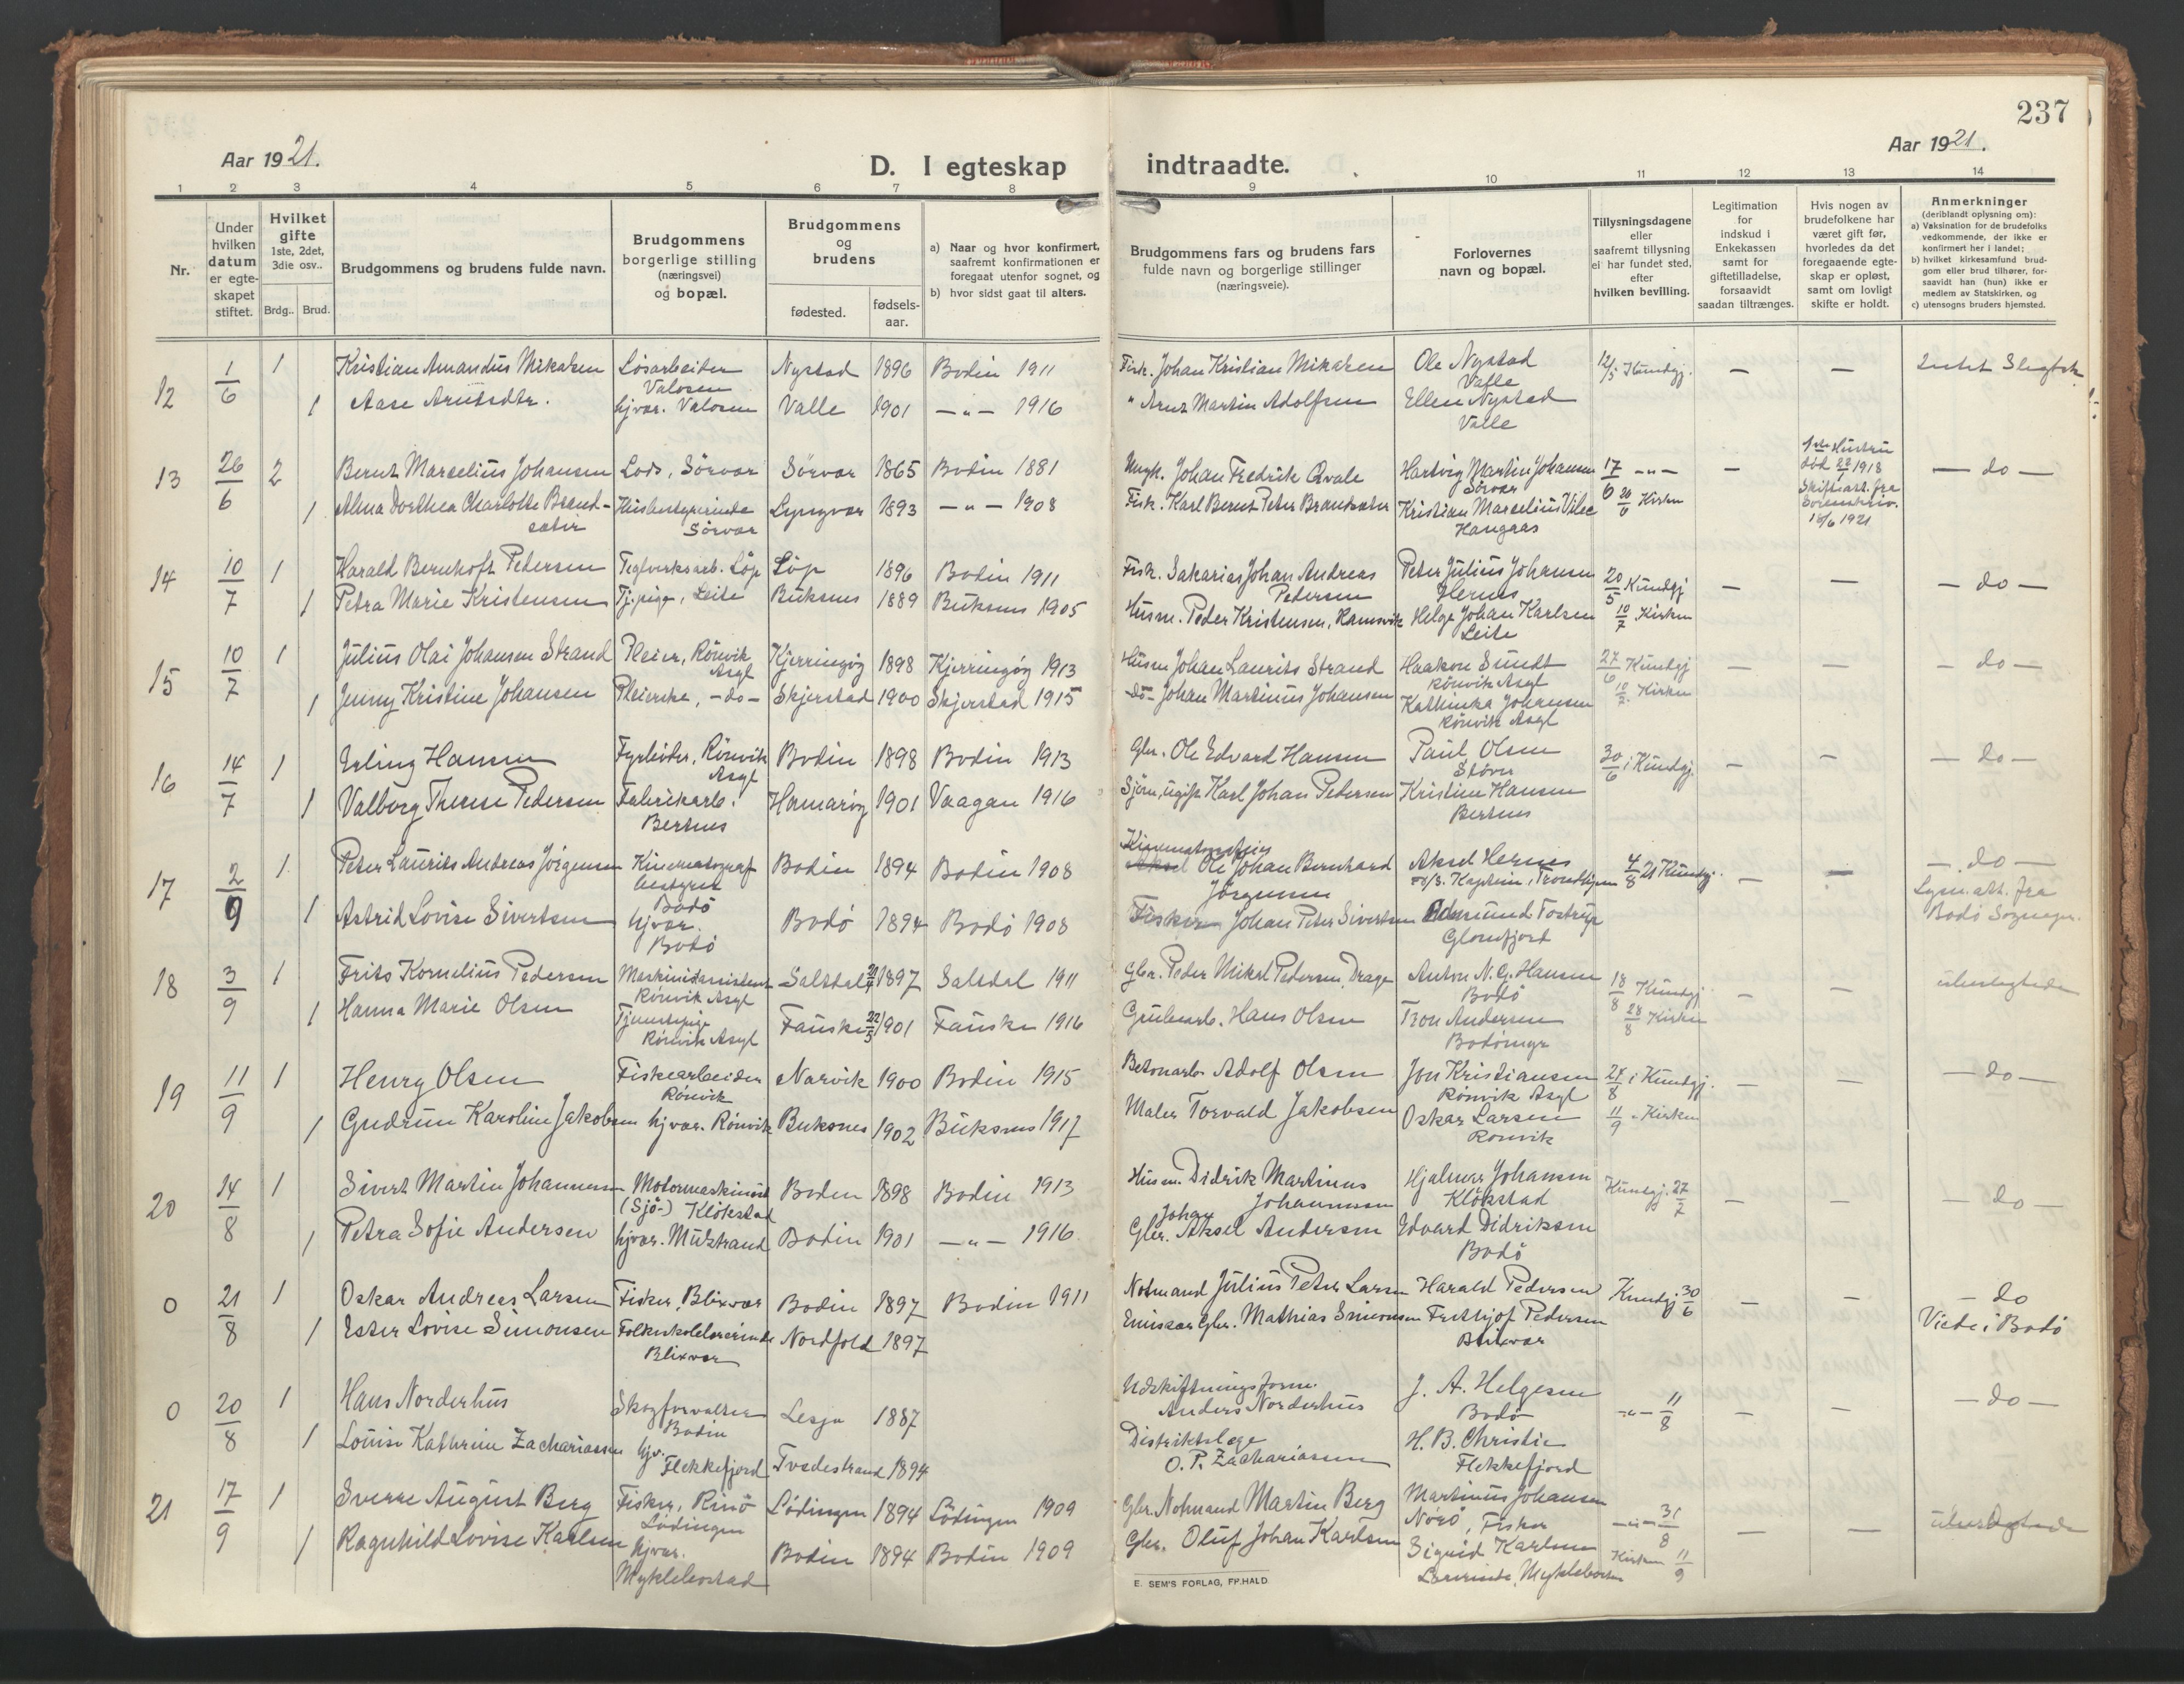 237
Aar 1921.
Aar 1921.
D. I egteskap indtraadte.
1 2 3 4 5 6 7 8 9 10 11 12 13 14
Nr.
Under hvilken datum er egte-skapet stiftet.
Hvilket gifte 1ste, 2det, 3die osv..
Brdg.. Brud.
Brudgommens og brudens fulde navn.
Brudgommens borgerlige stilling (næringsvei) og bopæl.
Brudgommens og brudens
fødested. fødsels-aar.
a) Naar og hvor konfirmert, saafremt konfirmationen er foregaat utenfor sognet, og
b) hvor sidst gaat til alters.
Brudgommens fars og brudens fars fulde navn og borgerlige stillinger (næringsveie).
Forlovernes navn og bopæl.
Tillysningsdagene eller saafremt tillysning ei har fundet sted, efter hvilken bevilling.
Legitimation for indskud i Enkekassen samt for giftetilladelse, forsaavidt saadan tiltrænges.
Hvis nogen av brudefolkene har været gift før, hvorledes da det foregaaende egte-skap er opløst, samt om lovligt skifte er holdt.
Anmerkninger (deriblandt oplysning om):
a) Vaksination for de brudefolks vedkommende, der ikke er konfirmert her i landet;
b) hvilket kirkesamfund brud-gom eller brud tilhører, for-saavidt han (hun) ikke er medlem av Statskirken, og
c) utensogns bruders hjemsted.
12 1/6 1 Kristian Amandus Mikalsen Løsarbeider Valosen Nystad 1896 Bodin 1911 Fisk. Johan Kristian Mikalsen Ole Nystad Valle 12/5 Kundgj. — —
1 Aase Arntsdtr. hjvær. Valosen Valle 1901 — " — 1916 " Arnt Martin Adolfsen Ellen Nystad Valle
13 26/6 2 Bernt Marselius Johansen Lods, Sørvær Sørvær 1865 Bodin 1881 Johan Fredrik Qvale Hartvig Martin Johansen Sørvær 17/6 — " — — 1ste Hustru død 1918 Skifteatt. fra Sorenskriv. 18/6 1921 — do —
1 Alma Dorthea Charlotte Brand-sæter Husbestyrerinde Sørvær Lyngvær 1893 — " — 1908 Fisk. Karl Bernt Peter Brandsæter Kristian Marselius Haugaas 26/6 Kirken
14 10/7 1 Harald Bernhoft Petersen Teglverksarb. Løp Løp 1896 Bodin 1911 Fisk. Sakarias Johan Andreas Petersen Peter Julius Johansen Hernes 20/5 Kundgj — — — do —
1 Petra Marie Kristensen Tj.pige, Leite Buksnes 1889 Buksnes 1905 Husm. Peder Kristensen, Ramsvik Helge Johan Karlsen Leite 10/7 Kirken
15 10/7 1 Julius Olai Johansen Strand Pleier, Rønvik Asyl Kjerringøy 1898 Kjerringøy 1913 Husm Johan Laurits Strand Haakon Sundt Rønvik Asyl 27/6 Kundgj — — — do —
1 Jenny Kristine Johansen Pleierske, — do — Skjerstad 1900 Skjerstad 1915 — do — Johan Martinius Johansen Kathinka Johansen Rønvik Asyl Kirken
16 14/7 1 Erling Hansen Fyrbøder, Rønvik Asyl Bodin 1898 Bodin 1913 Gbr. Ole Edvard Hansen Paul Olsen Støver 30/6 i Kundgj. — — — do —
1 Valborg Therese Pedersen Fabrikarb. Bertnes Hamarøy 1901 Vaagan 1916 Sjøm, ugift Karl Johan Pedersen Kristine Hansen Bertnes
17 2/9 1 Peter Laurits Andreas Jørgensen Kinematograf bestyrer Bodø Bodin 1894 Bodin 1908 Ole Johan Bernhard Jørgensen Aksel Hernes Kaptein, Trondhjem 4/8 21 Kundgj. — — — do —
1 Astrid Lovise Sivertsen hjvær. Bodø Bodø 1894 Bodø 1908 Fisker Johan Peter Sivertsen Tostrup Glomfjord Lysn. att. fra Bodø Sognepr.
18 3/9 1 Frits Kornelius Pedersen Maskinistassistent Rønvik Asyl Saltdal 1897 Saltdal 1911 Gbr. Peder Mikal Pedersen, Drage Anton N. C. Hansen Bodø 18/8 Kundgj — — ubeslegtede
1 Hanna Marie Olsen Tjenestepige Rønvik Asyl Fauske 22/5 1901 Fauske 1916 Grubearb. Hans Olsen Tron Andersen Bodømyr 28/8 Kirken
19 11/9 1 Henry Olsen Fiskearbeider Rønvik Narvik 1900 Bodin 1915 Betonarb. Adolf Olsen Jon Kristiansen Rønvik Asyl 24/8 i Kundgj. — — — do —
1 Gudrun Karoline Jakobsen hjvær. Rønvik Buksnes 1902 Buksnes 1917 Maler Torvald Jakobsen Oskar Larsen Rønvik 11/9 - Kirken
20 14/8 1 Sivert Martin Johannessen Motormaskinist (Sjø-) Klökstad Bodin 1898 Bodin 1913 Husm. Didrik Martinus Johannessen Hjalmar Johansen Klökstad Kundgj. 27/7 — — — do —
1 Petra Sofie Andersen hjvær. Bodin 1901 — " — 1916 Gbr. Johan Aksel Andersen Edvard Didriksen Bodø
0 21/8 1 Oskar Andreas Larsen Fisker, Blixvær Bodin 1897 Bodin 1911 Notmand Julius Peter Larsen Harald Pedersen Kundgj. 30/6 — — — do
1 Ester Lovise Simonsen Folkeskolelærerinde Blixvær Nordfold 1897 Emissær Gbr. Mathias Simonsen Frithjof Pedersen Blixvær Viede i Bodø
0 20/8 1 Hans Norderhus Skogforvalter Bodin Lesja 1887 Udskiftningsform. Anders Norderhus J. A. Helgesen Bodø — " — 11/8 — — — do —
1 Louise Kathrine Zachariassen hjv. Flekkefjord Tvedestrand 1894 Distriktslæge O. P. Zachariassen H. B. Christie Flekkefjord
21 17/9 1 Sverre August Berg Fisker, Rinø Lødingen Lødingen 1894 Lødingen 1909 Gbr. Notmand Martin Berg Martinus Johansen , Fisker — " — 31/8 — — ubeslegtede
1 Ragnhild Lovise Karlsen hjvær. Myklebostad Bodin 1894 Bodin 1909 Gbr. Oluf Johan Karlsen Sigrid Karlsen Lærerinde, Myklebostad Kirken 11/9
E. SEM'S FORLAG, FR.HALD